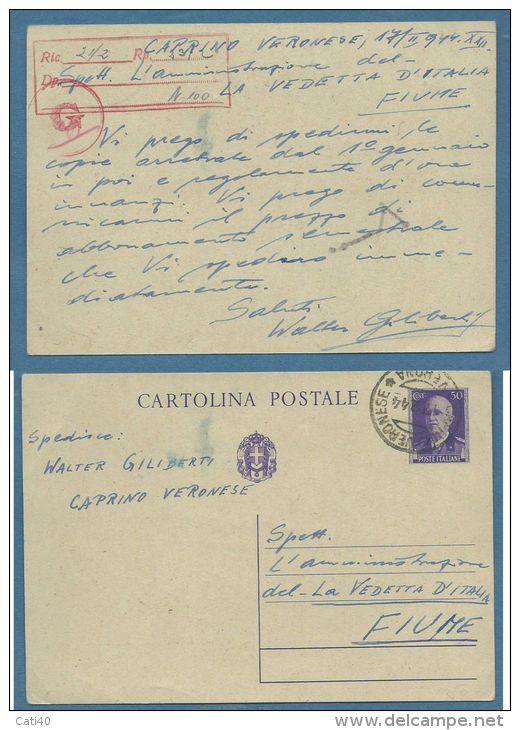 CAPRINO VERONESE, 17/II 944 XXII
Ric. 21/2 Rp.
Dp.
Spett. L'amministrazione del-
N 100 LA VEDETTA D'ITALIA
FIUME
Vi prego di spedirmi le
copie arretrate dal 1º gennaio
in poi e regolarmente d'ora
innanzi. Vi prego di comu-
nicarmi il prezzo di
abbonamento semestrale
che Vi spedirò imme-
diatamente.
Saluti
Walter Giliberti
CARTOLINA POSTALE
VERONESE
VERONA
CENT 50
POSTE ITALIANE
Spedisce:
WALTER GILIBERTI
CAPRINO VERONESE
Spett.
L'amministrazione
del- LA VEDETTA D'ITALIA
FIUME
Cati40
delcampe.net